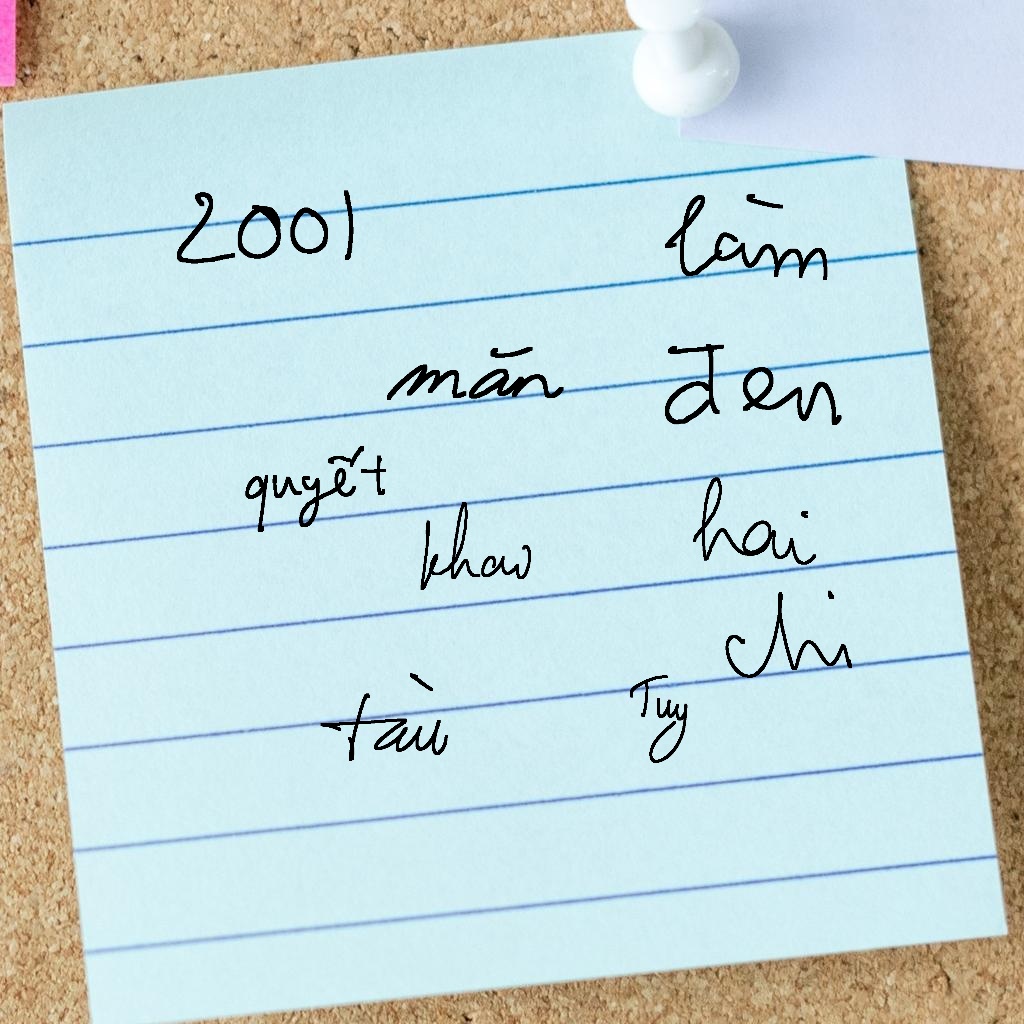 2001 làm
mãn đen
quyết
khao hai
chi
tàu Tuy